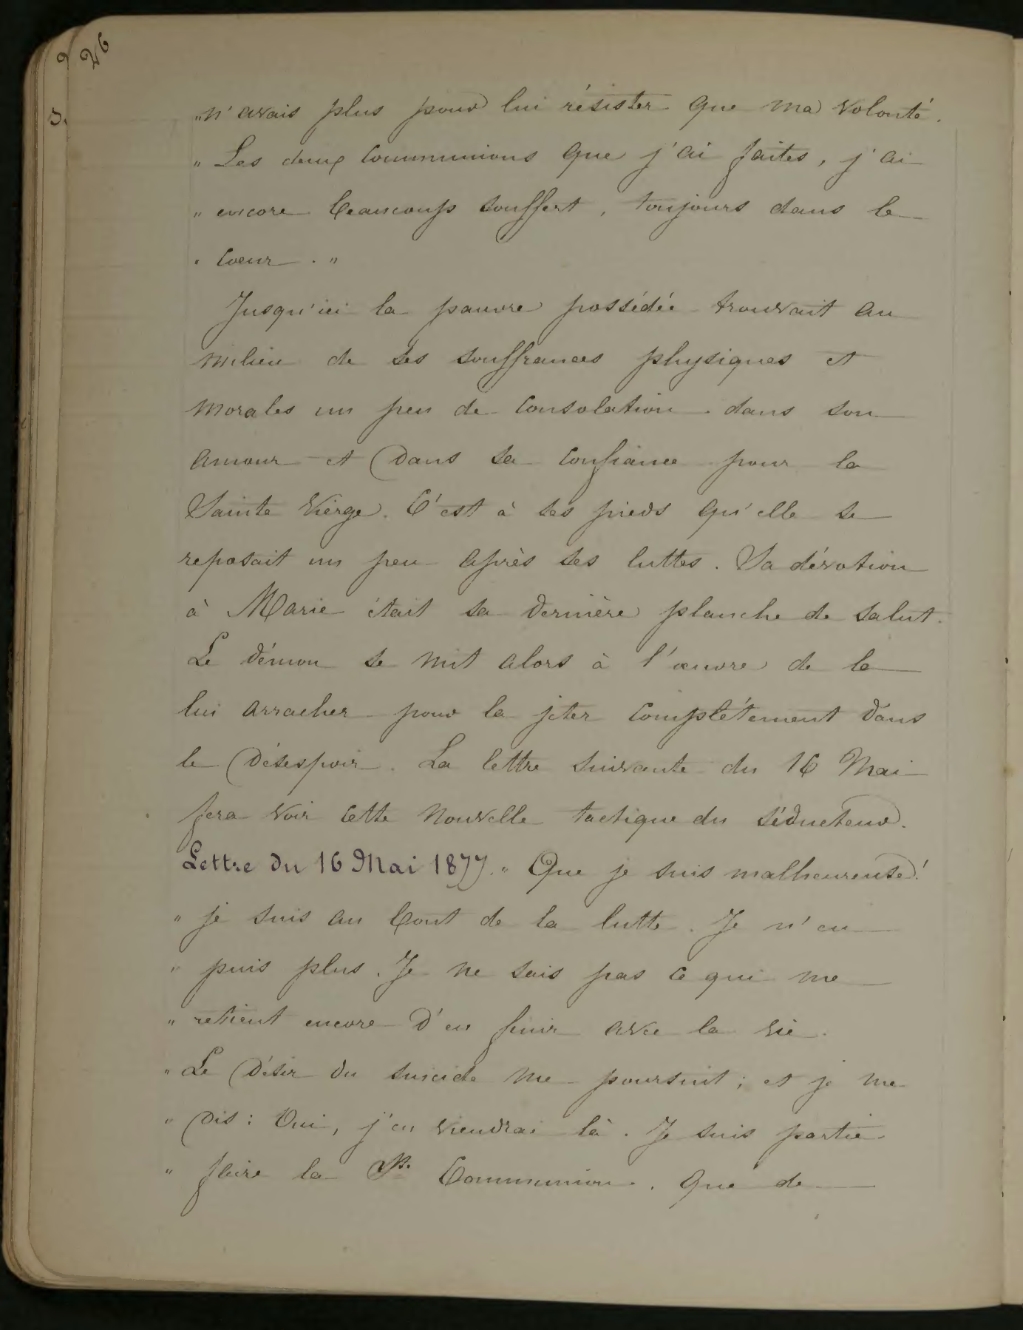 26
„n'avais plus pour lui résister que ma volonté.
„ Les deux communions que j'ai faites, j'ai
„ encore beaucoup souffert, toujours dans le
„ coeur. "
Jusqu'ici la pauvre possédée trouvait au
milieu de ses souffrances physiques et
morales un peu de consolation dans son
amour et dans sa confiance pour la
Sainte Vierge. C'est à ses pieds qu'elle se
reposait un peu après ses luttes. Sa dévotion
à Marie était sa dernière planche de salut.
Le démon se mit alors à l'œuvre de la
lui arracher pour la jeter complètement dans
le désespoir. La lettre suivante du 16 Mai
fera voir cette nouvelle tactique du séducteur.
Lettre du 16 Mai 1877. „ Que je suis malheureuse!
„ je suis au bout de la lutte. Je n'en
„ puis plus. Je ne sais pas ce qui me
„ retient encore d'en finir avec la vie.
„ Le désir du suicide me poursuit; et je me
„ dis: Oui, j'en viendrai là. Je suis partie
„ faire la Ste Communion. Que de